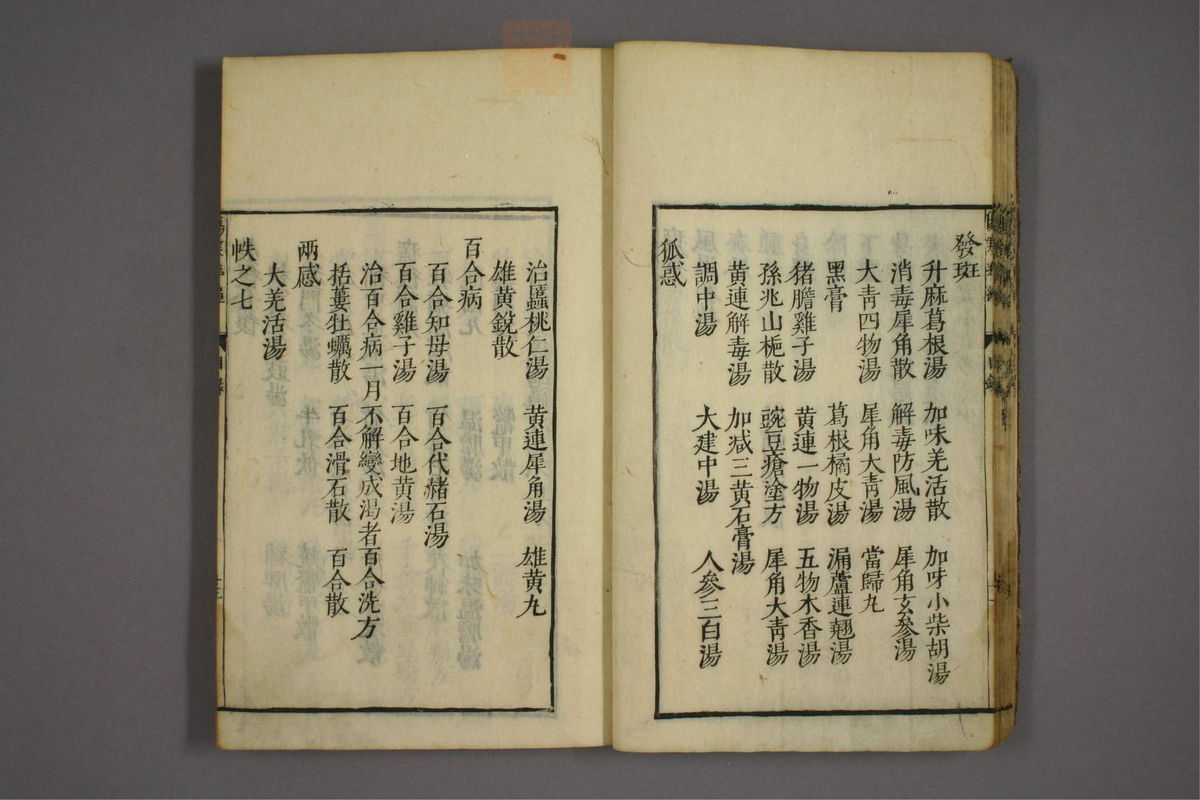 發斑
升麻葛根湯　加味羌活散　加味小柴胡湯
消毒犀角散　解毒防風湯　犀角玄參湯
大青四物湯　犀角大青湯　當歸丸
黑膏　葛根橘皮湯　漏蘆連翹湯
猪膽雞子湯　黃連一物湯　五物木香湯
孫兆山梔散　豌豆瘡塗方　犀角大青湯
黃連解毒湯　加減三黃石膏湯
調中湯　大建中湯　人參三白湯
狐惑
治䘌桃仁湯　黃連犀角湯　雄黃丸
雄黃銳散
百合病
百合知母湯　百合代赭石湯
百合雞子湯　百合地黃湯
治百合病一月不解變成渴者百合洗方
括蔞牡蠣散　百合滑石散　百合散
两感
大羌活湯
帙之七